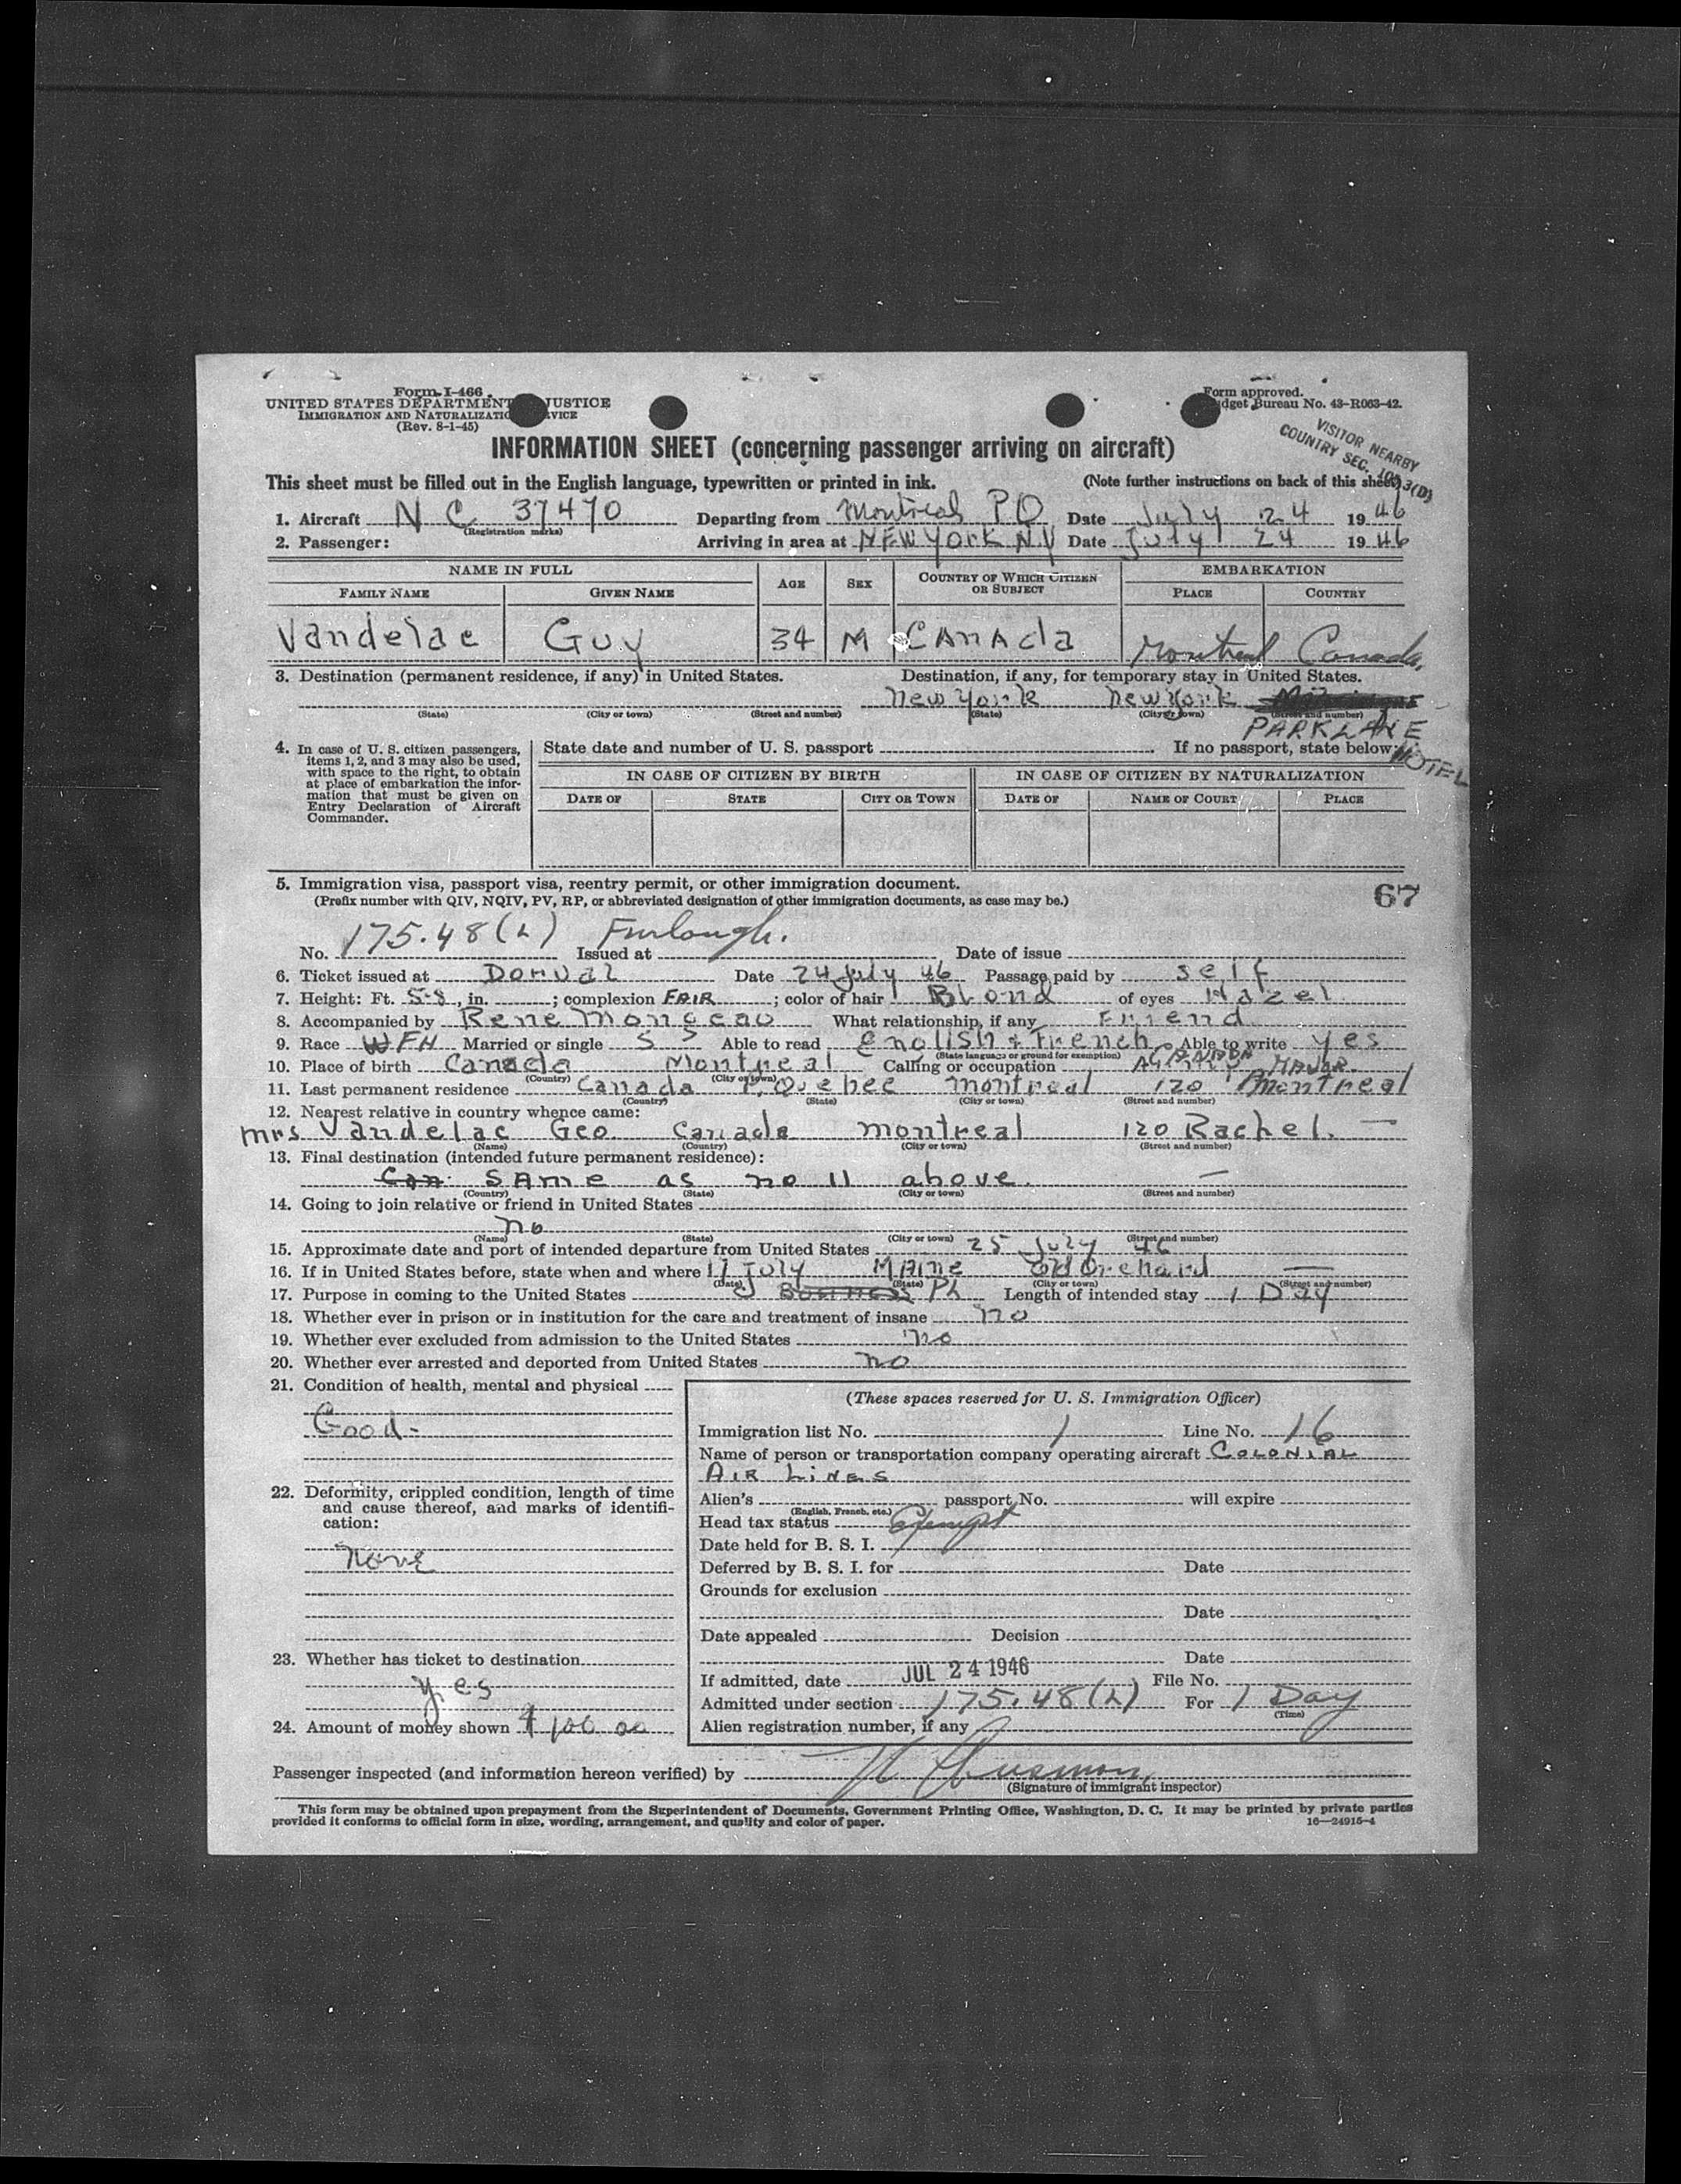 Form I-466
UNITED STATES DEPARTMENT JUSTICE
IMMIGRATION AND NATURALIZATIO VICE
(Rev. 8-1-45)
Form approved.
dget Bureau No. 43-R063-42.
VISITOR NEARBY
COUNTRY SEC. 3(D)
INFORMATION SHEET (concerning passenger arriving on aircraft)
This sheet must be filled out in the English language, typewritten or printed in ink. (Note further instructions on back of this sheet)
1. Aircraft N C 37470 Departing from Montreal PQ Date July 24 1946
(Registration marks)
2. Passenger: Arriving in area at NEW YORK NY Date July 24 1946
NAME IN FULL AGE SEX COUNTRY OF WHICH CITIZEN OR SUBJECT EMBARKATION
FAMILY NAME GIVEN NAME PLACE COUNTRY
Vandelac Guy 34 M CANAda Montreal Canada
3. Destination (permanent residence, if any) in United States. Destination, if any, for temporary stay in United States.
new york new york
(State) (City or town) (Street and number) (State) (City or town) (Street and number)
PARKLANE
HOTEL
4. In case of U. S. citizen passengers, items 1, 2, and 3 may also be used, with space to the right, to obtain at place of embarkation the information that must be given on Entry Declaration of Aircraft Commander.
State date and number of U. S. passport If no passport, state below:
IN CASE OF CITIZEN BY BIRTH IN CASE OF CITIZEN BY NATURALIZATION
DATE OF STATE CITY OR TOWN DATE OF NAME OF COURT PLACE
5. Immigration visa, passport visa, reentry permit, or other immigration document.
(Prefix number with QIV, NQIV, PV, RP, or abbreviated designation of other immigration documents, as case may be.)
67
No. 175.48(L) Issued at Furlough. Date of issue
6. Ticket issued at Dorval Date 24 July 46 Passage paid by self
7. Height: Ft. 5-8, in. ; complexion FAIR ; color of hair Blond of eyes Hazel
8. Accompanied by Rene Mongeau What relationship, if any Friend
9. Race WFH Married or single S Able to read English & French Able to write yes
(State language or ground for exemption)
10. Place of birth Canada Montreal Calling or occupation MAJOR
(Country) (City or town)
11. Last permanent residence Canada P. Quebec montreal 120 Montreal
(Country) (State) (City or town) (Street and number)
12. Nearest relative in country whence came:
mrs Vandelac Geo. Canada montreal 120 Rachel.
(Name) (Country) (City or town) (Street and number)
13. Final destination (intended future permanent residence):
Can. SAme as no 11 above.
(Country) (State) (City or town) (Street and number)
14. Going to join relative or friend in United States
no
(Name) (State) (City or town) (Street and number)
15. Approximate date and port of intended departure from United States 25 July 46
16. If in United States before, state when and where 17 July MAine Old Orchard
(Date) (State) (City or town) (Street and number)
17. Purpose in coming to the United States Business Pl Length of intended stay 1 Day
18. Whether ever in prison or in institution for the care and treatment of insane no
19. Whether ever excluded from admission to the United States no
20. Whether ever arrested and deported from United States no
21. Condition of health, mental and physical
Good-
22. Deformity, crippled condition, length of time and cause thereof, and marks of identification:
None
23. Whether has ticket to destination
yes
24. Amount of money shown $100.00
(These spaces reserved for U. S. Immigration Officer)
Immigration list No. 1 Line No. 16
Name of person or transportation company operating aircraft COLONIAL
AIR LINES
Alien's passport No. will expire
(English, French, etc.)
Head tax status Exempt
Date held for B. S. I.
Deferred by B. S. I. for Date
Grounds for exclusion
Date
Date appealed Decision
Date
If admitted, date JUL 24 1946 File No.
Admitted under section 175.48(L) For 1 Day
(Time)
Alien registration number, if any
Passenger inspected (and information hereon verified) by
(Signature of immigrant inspector)
This form may be obtained upon prepayment from the Superintendent of Documents, Government Printing Office, Washington, D. C. It may be printed by private parties
provided it conforms to official form in size, wording, arrangement, and quality and color of paper. 16—24915-4